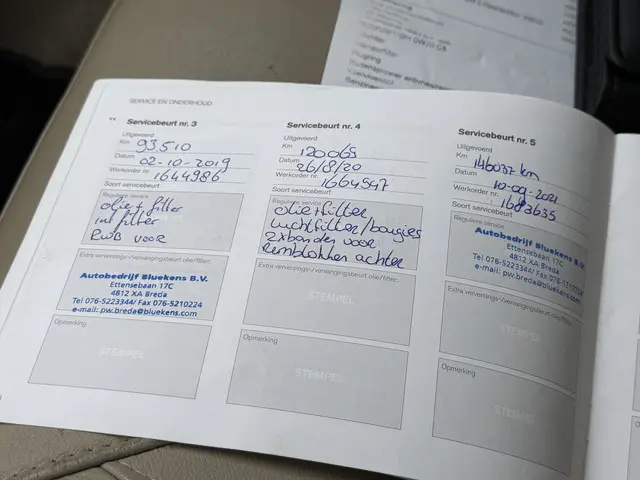 SERVICE EN ONDERHOUD
Servicebeurt nr. 3
Uitgevoerd
Km 93510
Datum 02-10-2019
Werkorder nr. 1644986
Soort servicebeurt
Reguliere service
olie+filter
int filter
RWB voor
Extra verversings-/vervangingsbeurt olie/filter:
Autobedrijf Bluekens B.V.
Ettensebaan 17C
4812 XA Breda
Tel 076-5223344/ Fax 076-5210224
e-mail: pw.breda@bluekens.com
Opmerking
STEMPEL
Servicebeurt nr. 4
Uitgevoerd
Km 120065
Datum 26/8/20
Werkorder nr. 1664547
Soort servicebeurt
Reguliere service
olie+filter
luchtfilter/bougies
2xbanden voor
Remblokken achter
Extra verversings-/vervangingsbeurt olie/filter:
STEMPEL
Opmerking
STEMPEL
Servicebeurt nr. 5
Uitgevoerd
Km 146037 km
Datum 10-09-2021
Werkorder nr. 1683635
Soort servicebeurt
Reguliere service
Autobedrijf Bluekens B.V.
Ettensebaan 17C
4812 XA Breda
Tel 076-5223344/ Fax 076-5210224
e-mail: pw.breda@bluekens.com
Extra verversings-/vervangingsbeurt olie/filter:
STEMPEL
Opmerking
STEMPEL